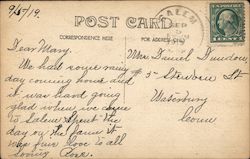 9/15/19.
SALEM
POST CARD
CORRESPONDENCE HERE
FOR ADDRESS
Dear Mary,
We had some rainy
day coming home and
it was hard going
glad when we came
to Salem Spent the
day on the farm it
was fine love to all
Mrs Daniel
# 5- St
Waterbury
Conn